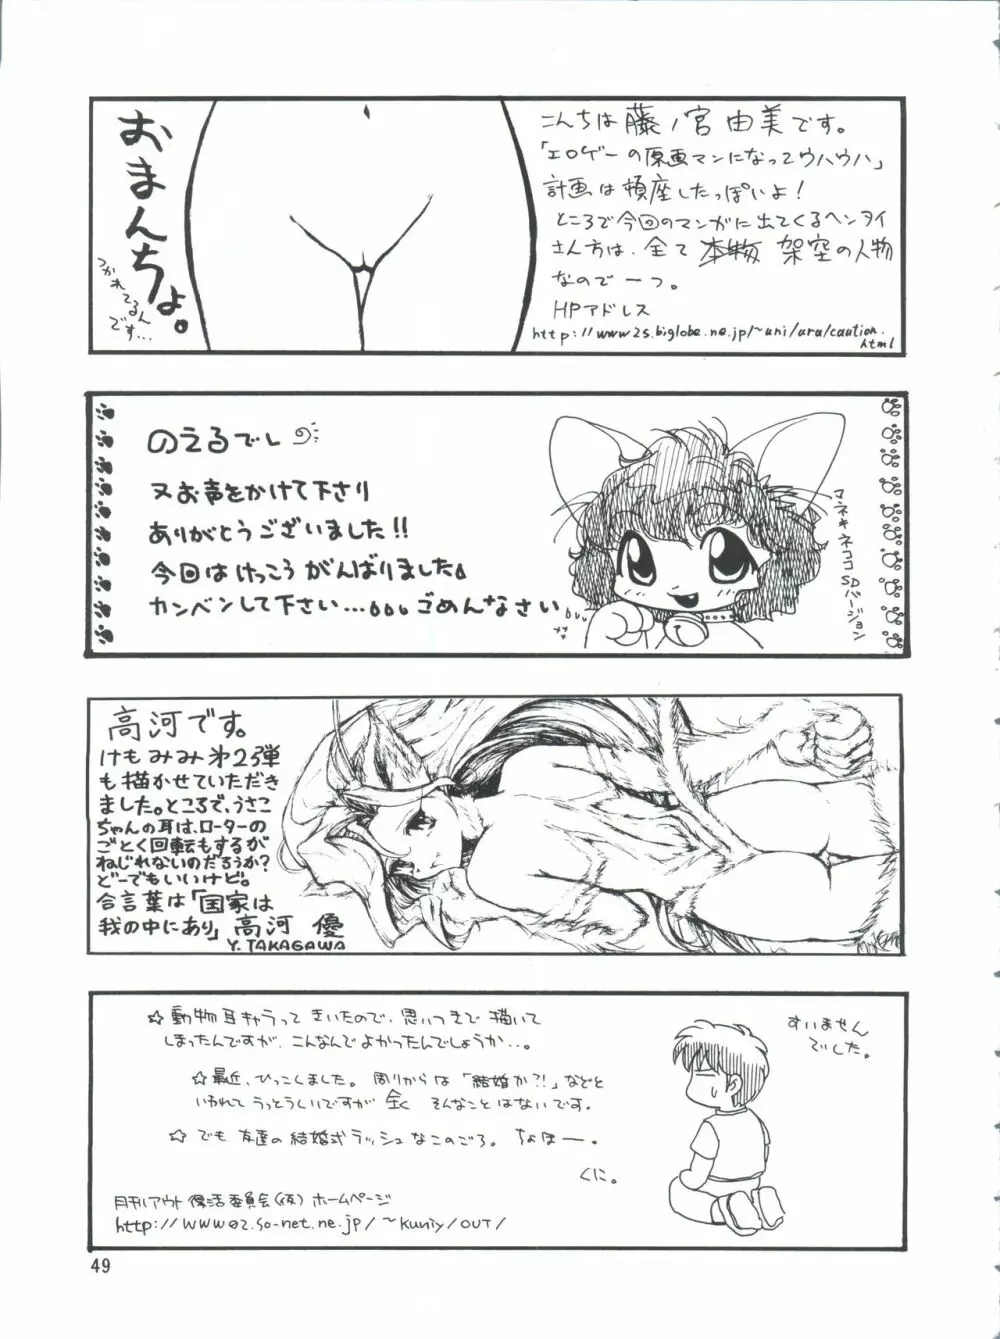 おまんちょ。
つかれてるん
です…
こんちは藤ノ宮由美です。
「エロゲーの原画マンになってウハウハ」
計画は頓座したっぽいよ！
ところで今回のマンガに出てくるヘンタイ
さん方は、全て本物 架空の人物
なのでーつ。
HPアドレス
http://www2s.biglobe.ne.jp/~uni/ura/caution.
html
のえるでし
又お声をかけて下さり
ありがとうございました!!
今回はけっこうがんばりました
カンベンして下さい…ごめんなさい
マネキネココ
SDバージョン
高河です。
けもみみ第2弾
も描かせていただき
ました。ところで、うさこ
ちゃんの耳は、ローターの
ごとく回転もするが
ねじれないのだろうか?
どーでもいいけど。
合言葉は「国家は
我の中にあり」高河 優
Y.TAKAGAWA
☆動物耳キャラって きいたので、思いつきで描いて
しまったんですが、こんなんでよかったんでしょうか…。
☆最近、ひっこしました。周りからは「結婚か?!」などと
いわれて うっとうしいですが 全く そんなことはないです。
☆でも 友達の結婚式ラッシュなこのごろ。ちょほー。
くに。
月刊アウト復活委員会(仮)ホームページ
http://www02.so-net.ne.jp/~kuniy/OUT/
すいません
でした。
49